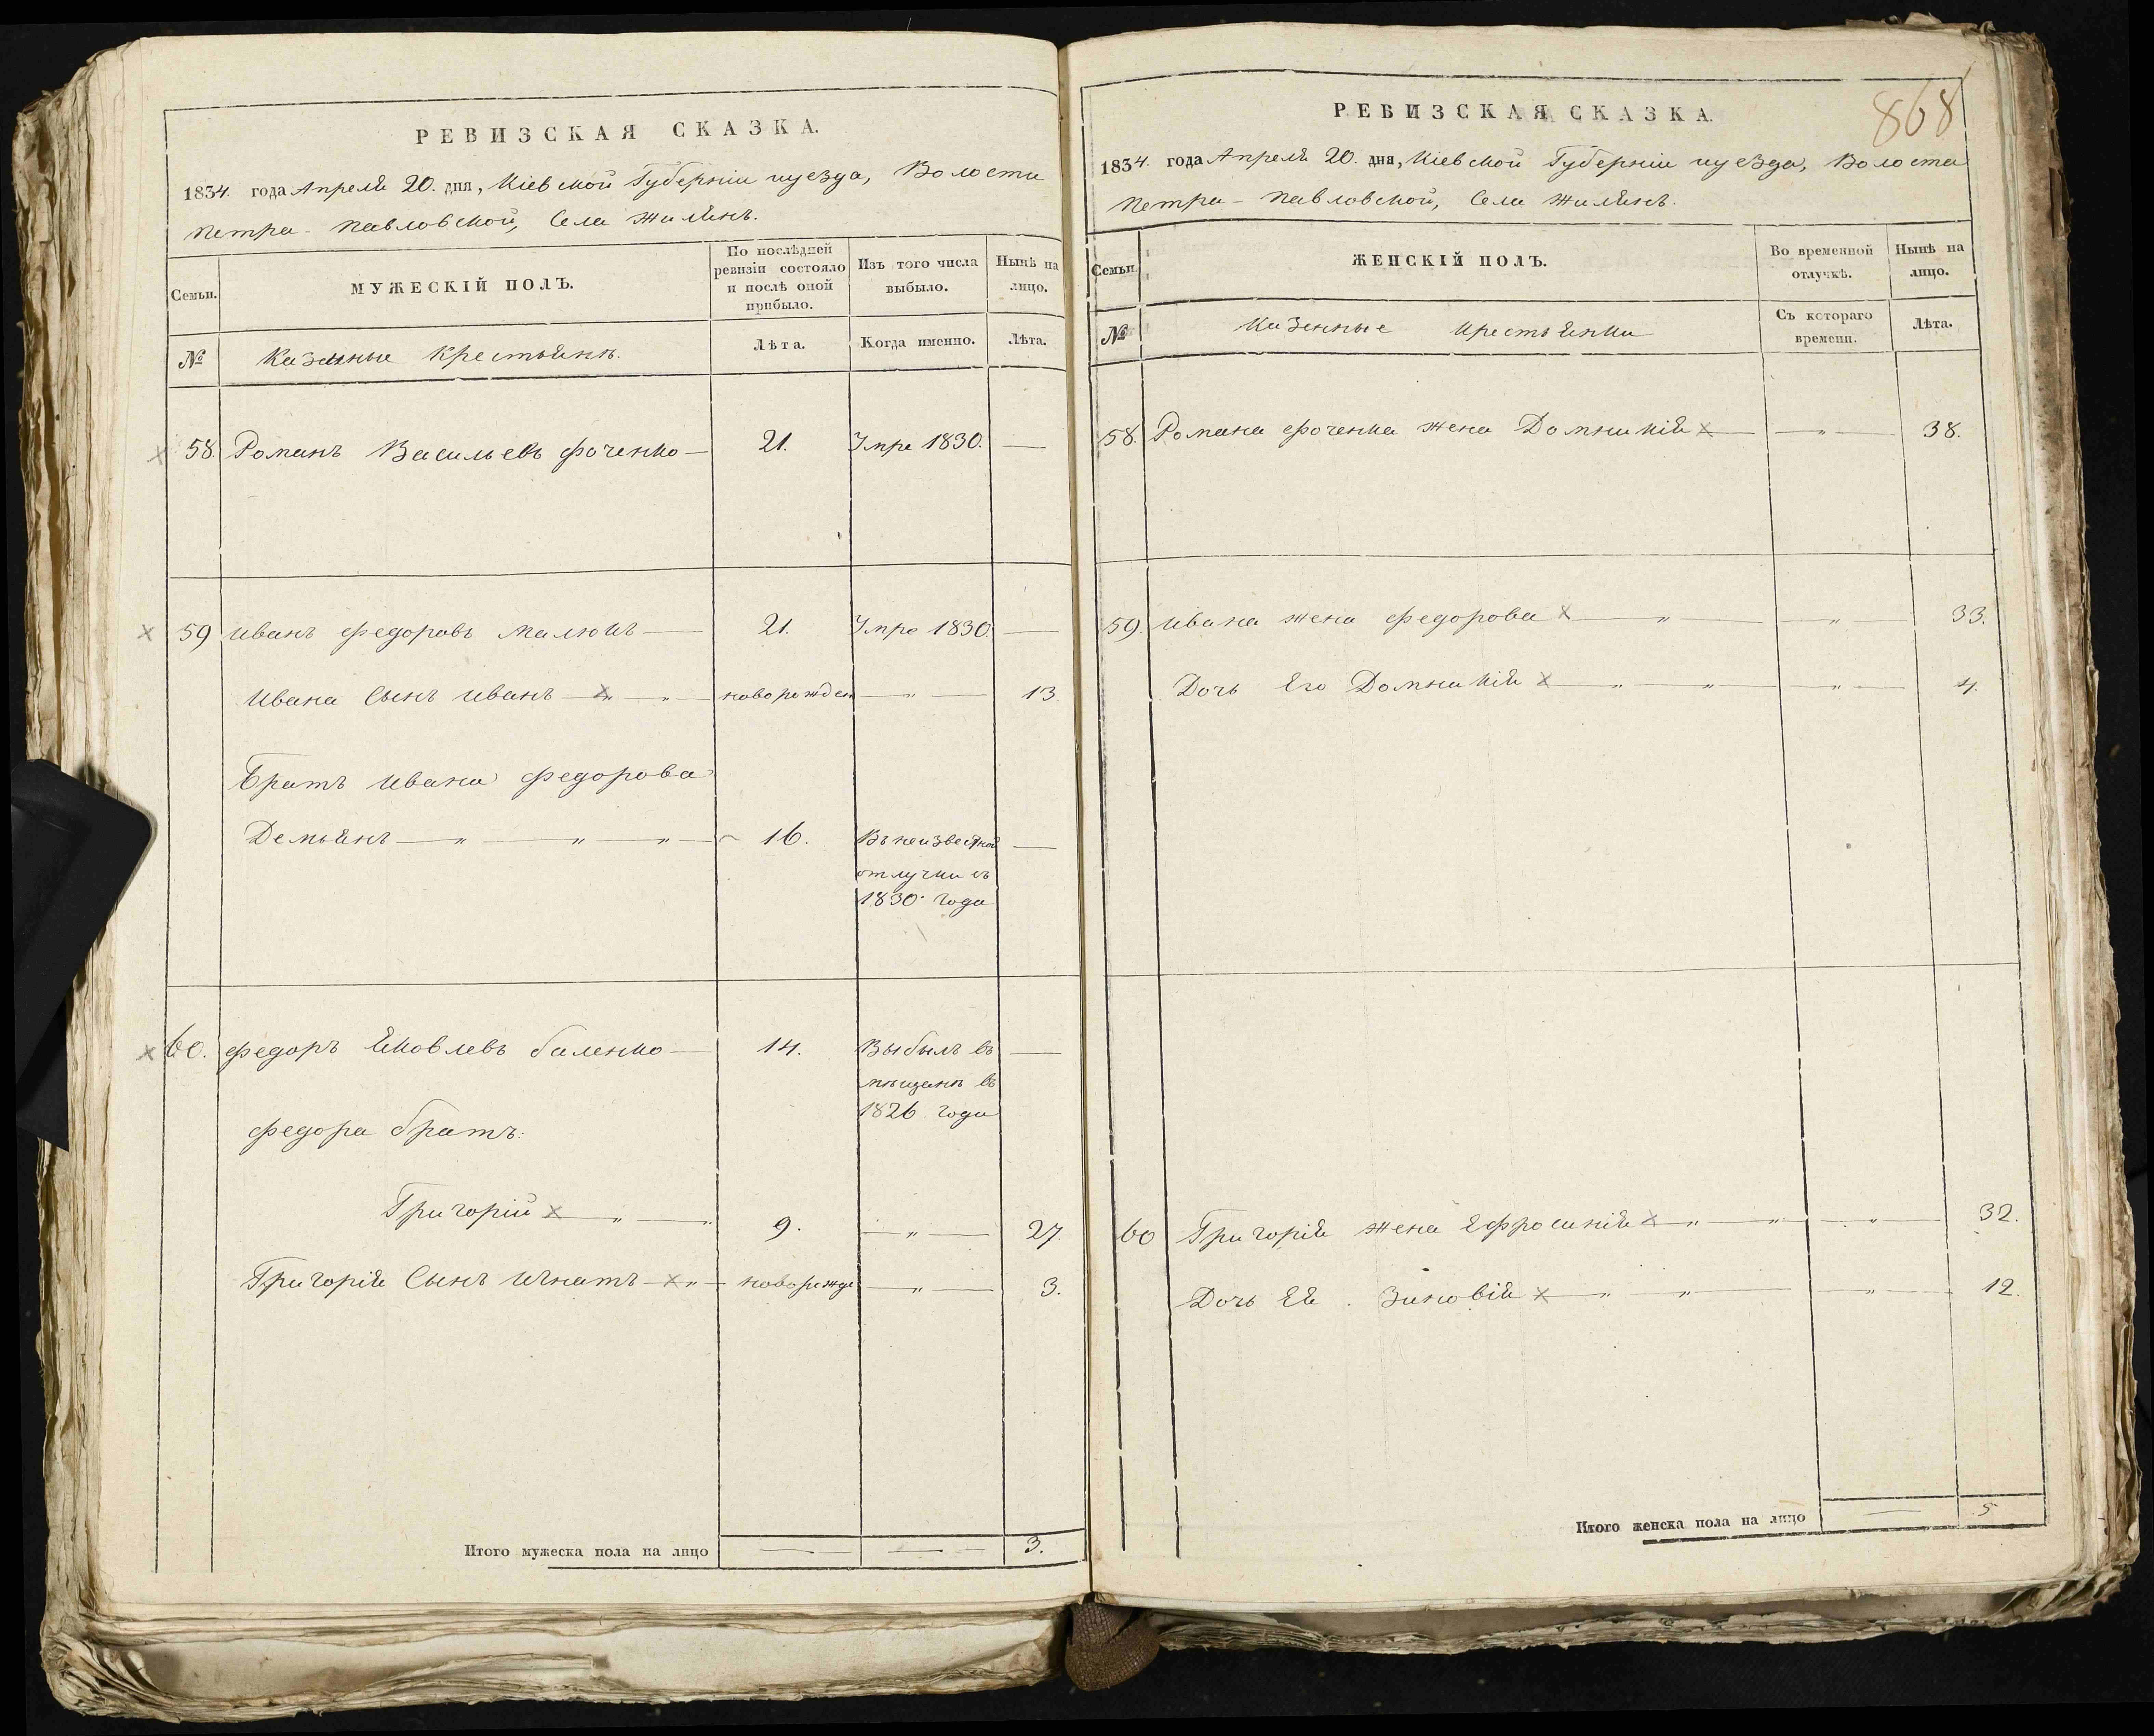 РЕВИЗСКАЯ СКАЗКА.
1834. года Апреля 20. дня, Кіевской Губерніи и уезда, Волости
Петра-Павловской, Села Жилянъ.
Семьи.
МУЖЕСКІЙ ПОЛЪ.
По послѣдней ревизіи состояло и послѣ оной прибыло.
Изъ того числа выбыло.
Нынѣ на лицо.
№
Казенные Крестьянѣ.
Лѣта.
Когда именно.
Лѣта.
58. Романъ Васильевъ Фоченко — 21. Умре 1830. —
59 Иванъ Федоровъ Малюкъ — 21. Умре 1830. —
Ивана Сынъ Иванъ — х " — новорожден — " — 13
Братъ Ивана Федорова
Демьянъ — " — " — " — 16. Въ неизвестной —
отлучки съ
1830. года
60. Федоръ Яковлевъ Баленко — 14. Выбылъ въ —
мѣщанѣ въ
1826 года
Федора братъ:
Григорій х — " — " 9. — " — 27.
Григорія Сынъ Игнатъ — х " — новорожде — " — 3.
Итого мужеска пола на лицо — — 3.
РЕВИЗСКАЯ СКАЗКА.
868
1834. года Апреля 20. дня, Кіевской Губерніи и уезда, Волости
Петра-Павловской, Села Жилянъ.
Семьи.
ЖЕНСКІЙ ПОЛЪ.
Во временной отлучкѣ.
Нынѣ на лицо.
№
Казенные Крестьянки
Съ котораго времени.
Лѣта.
58. Романа Фоченка жена Домникія х — — " — 38.
59. Ивана жена Федорова х — " — — " — 33.
Дочь Его Домникія х — " — " — — " — 4.
60 Григорія жена Ефросинія х — " — " — — " — 32.
Дочь Ея. Зиновія х — " — " — — " — 12.
Итого женска пола на лицо — 5